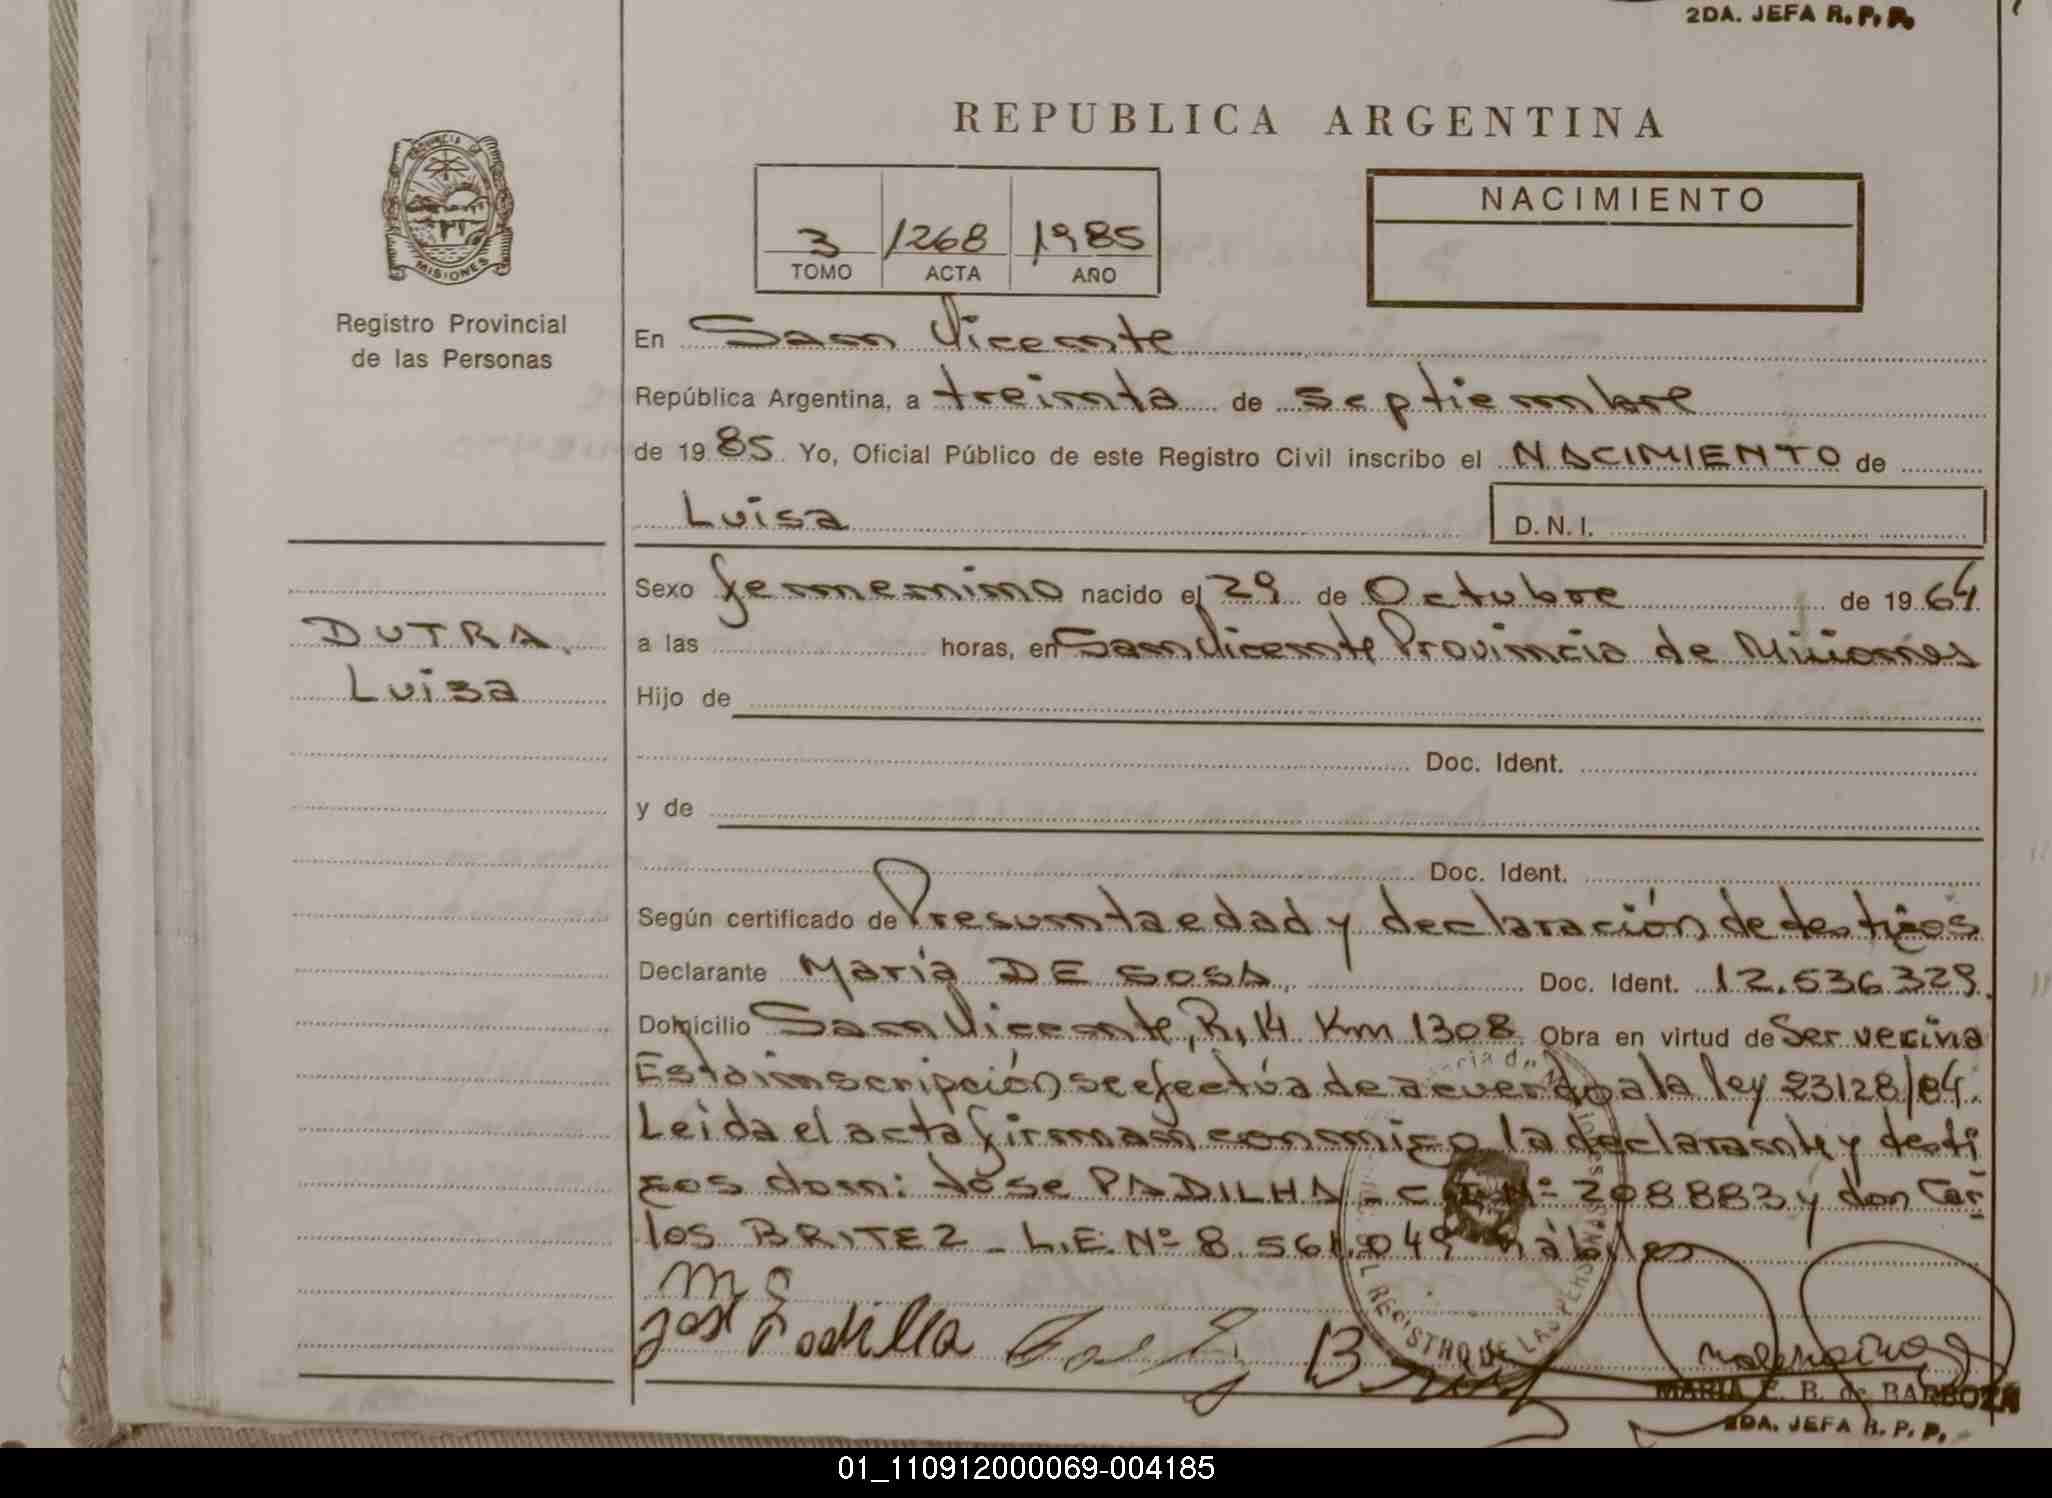 2DA. JEFA R. P. P.
REPUBLICA ARGENTINA
PROVINCIA DE
MISIONES
Registro Provincial
de las Personas
3 1268 1985
TOMO ACTA AÑO
NACIMIENTO
En San Vicente
República Argentina, a treinta de septiembre
de 1985 Yo, Oficial Público de este Registro Civil inscribo el NACIMIENTO de
Luisa D.N.I.
DUTRA
Luisa
Sexo femenino nacido el 29 de Octubre de 1964
a las horas, en San Vicente Provincia de Misiones
Hijo de
Doc. Ident.
y de
Doc. Ident.
Según certificado de Presunta edad y declaración de testigos
Declarante María DE SOSA Doc. Ident. 12.536.329.
Domicilio San Vicente, R, 14 Km 1308 Obra en virtud de Ser vecina
Esta inscripción se efectúa de acuerdo a la ley 23128/84.
Leida el acta firman conmigo la declarante y testi
gos don: Jose PADILHA - C.I. Nº 208883 y don Car-
los BRITEZ - L.E. Nº 8.561.049 hábiles
M S
José Padilla
REGISTRO DE LAS PERSONAS
MARIA E. B. de BARBOZA
2DA. JEFA R. P. P.
01_110912000069-004185